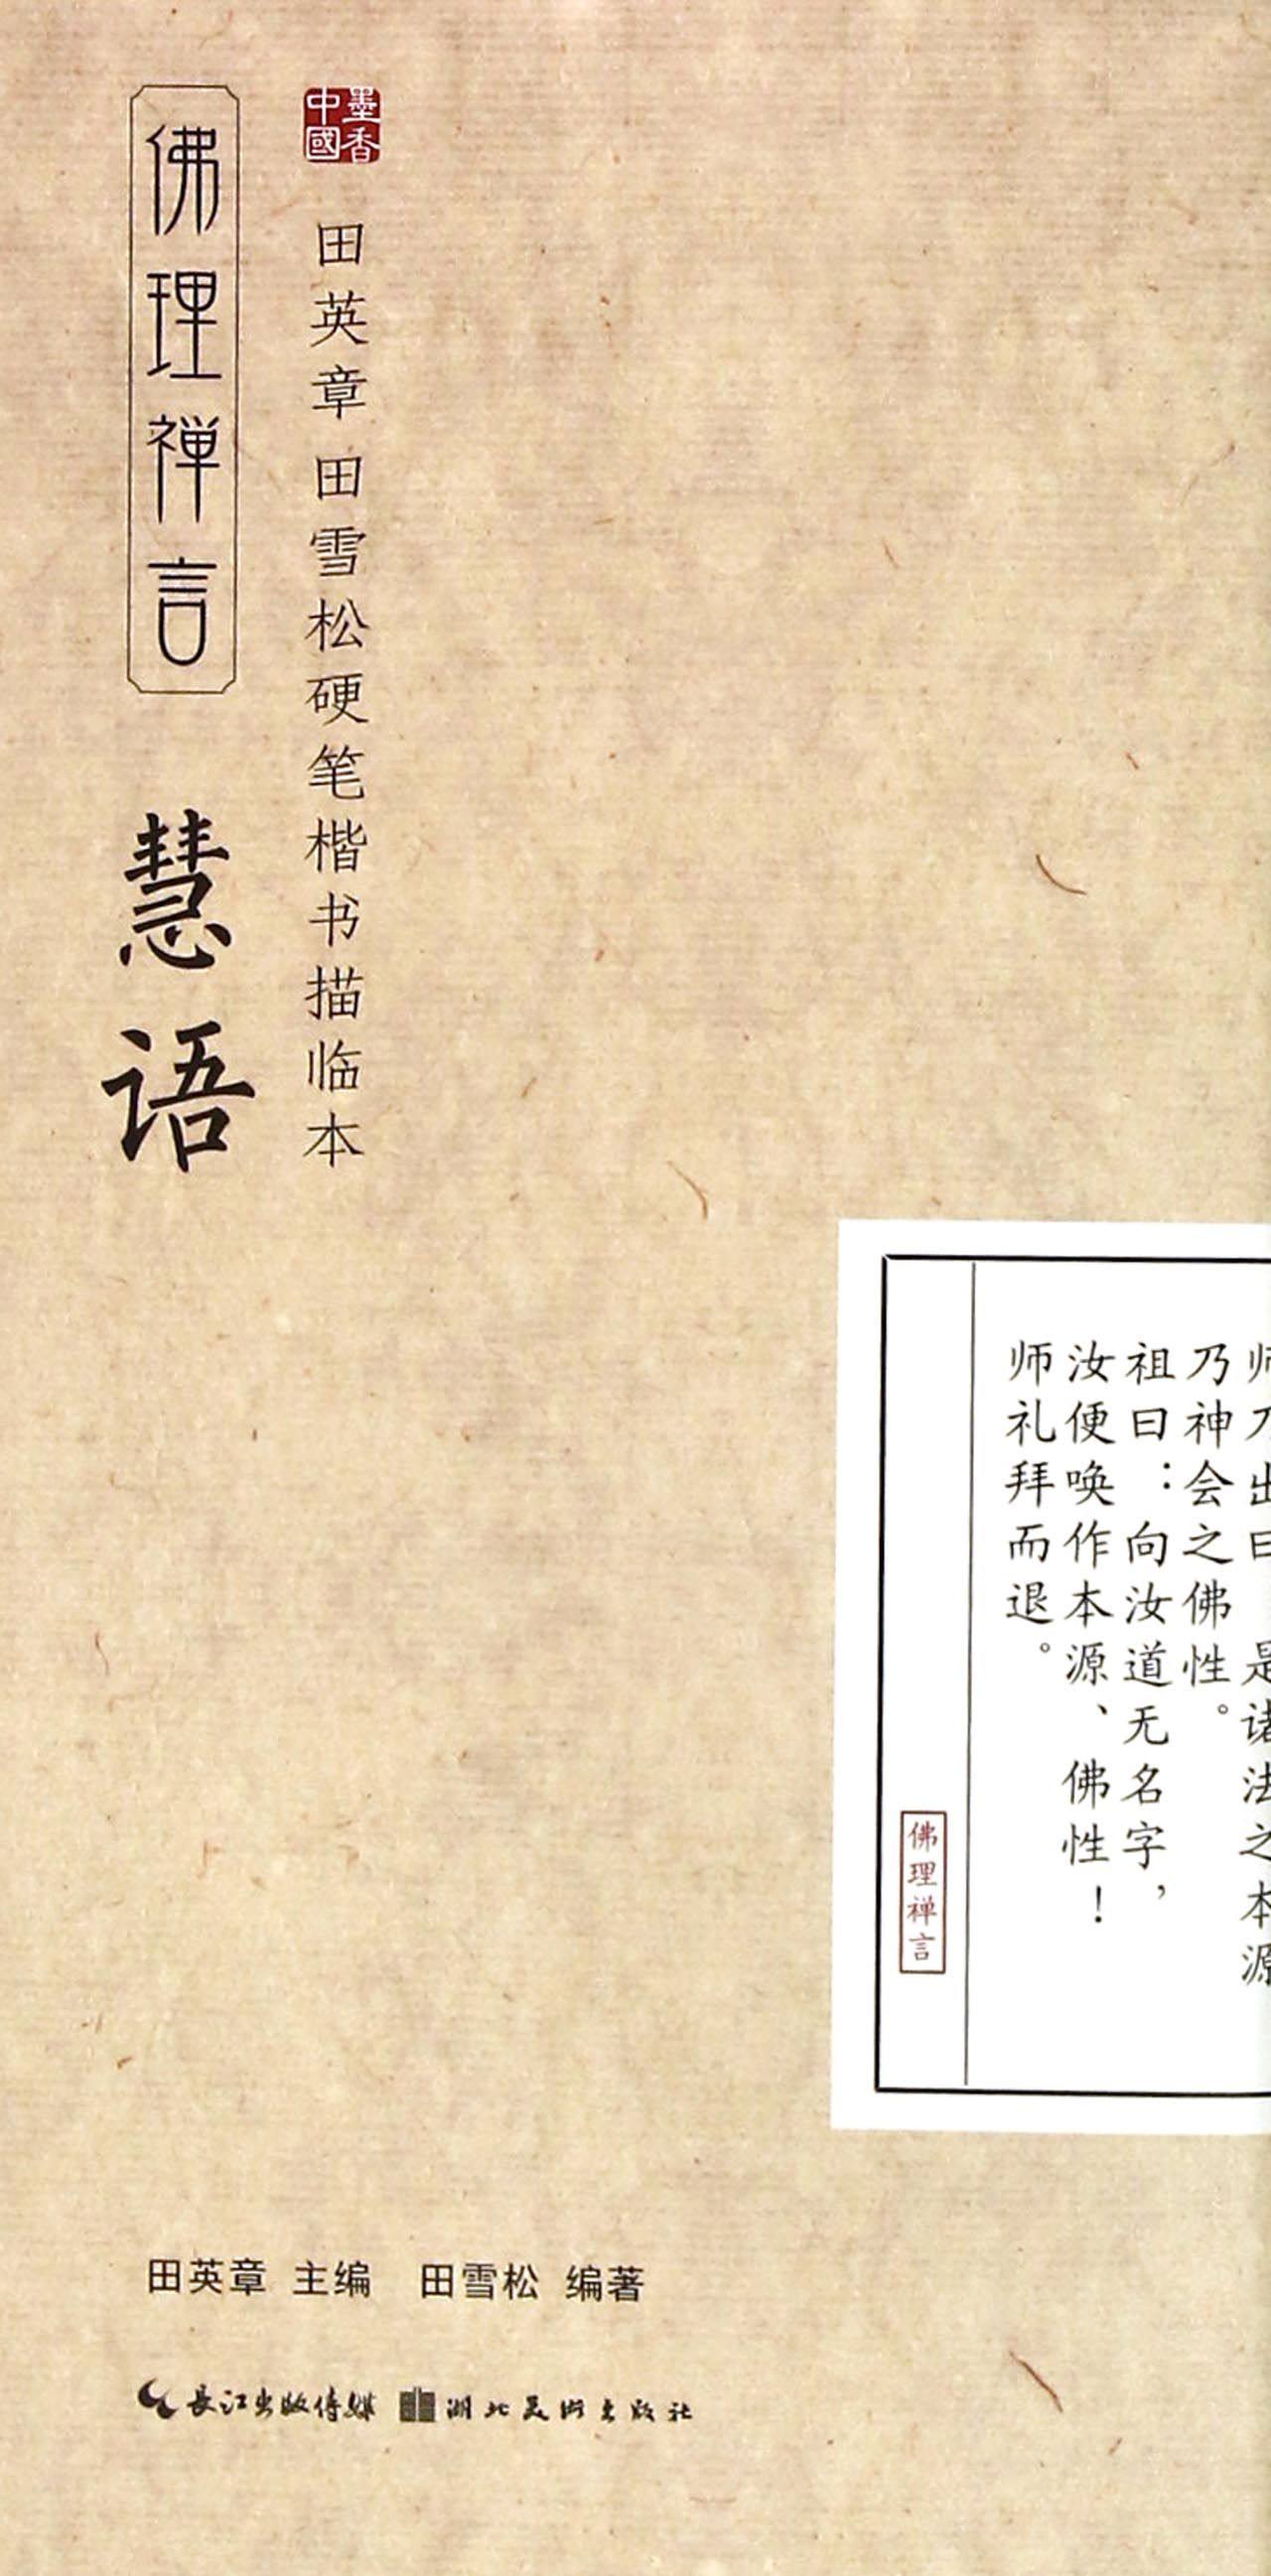 佛理禅言
慧语
墨香中國
田英章田雪松硬笔楷书描临本
师乃出曰 是诸法之本源
乃神会之佛性。
祖曰：向汝道无名字，
汝便唤作本源、佛性！
师礼拜而退。
佛理禅言
田英章 主编 田雪松 编著
長江出版传媒 湖北美术出版社